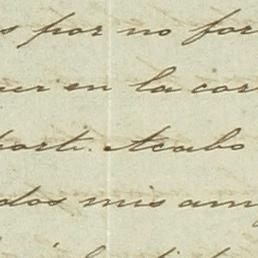 s por no for
ur en la cor
porte. Acabo
dos mis am